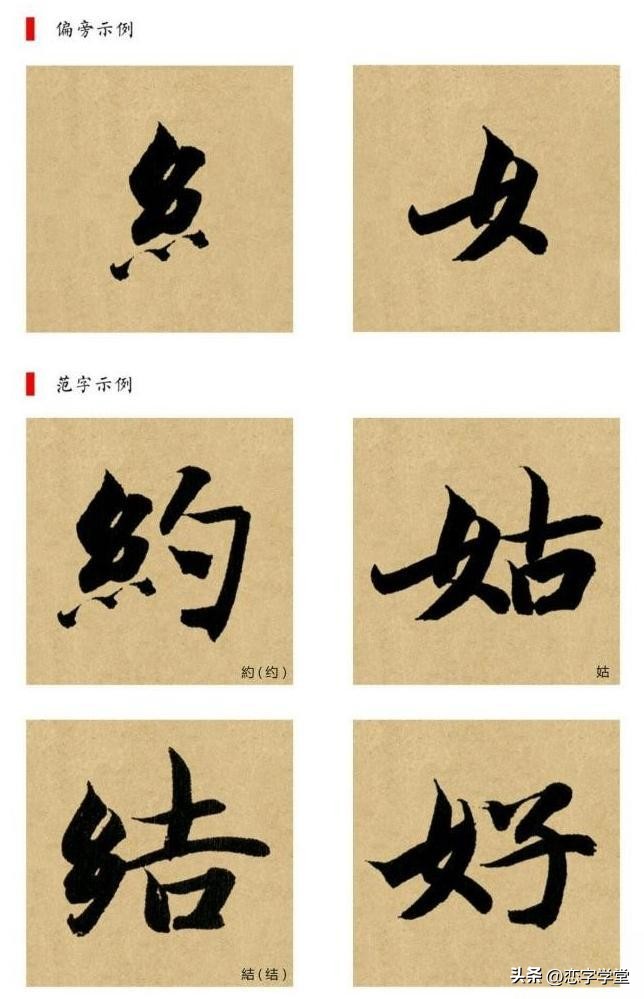 偏旁示例
糹 女
范字示例
約 姑
約(约) 姑
結 好
結(结)
头条 @恋字学堂